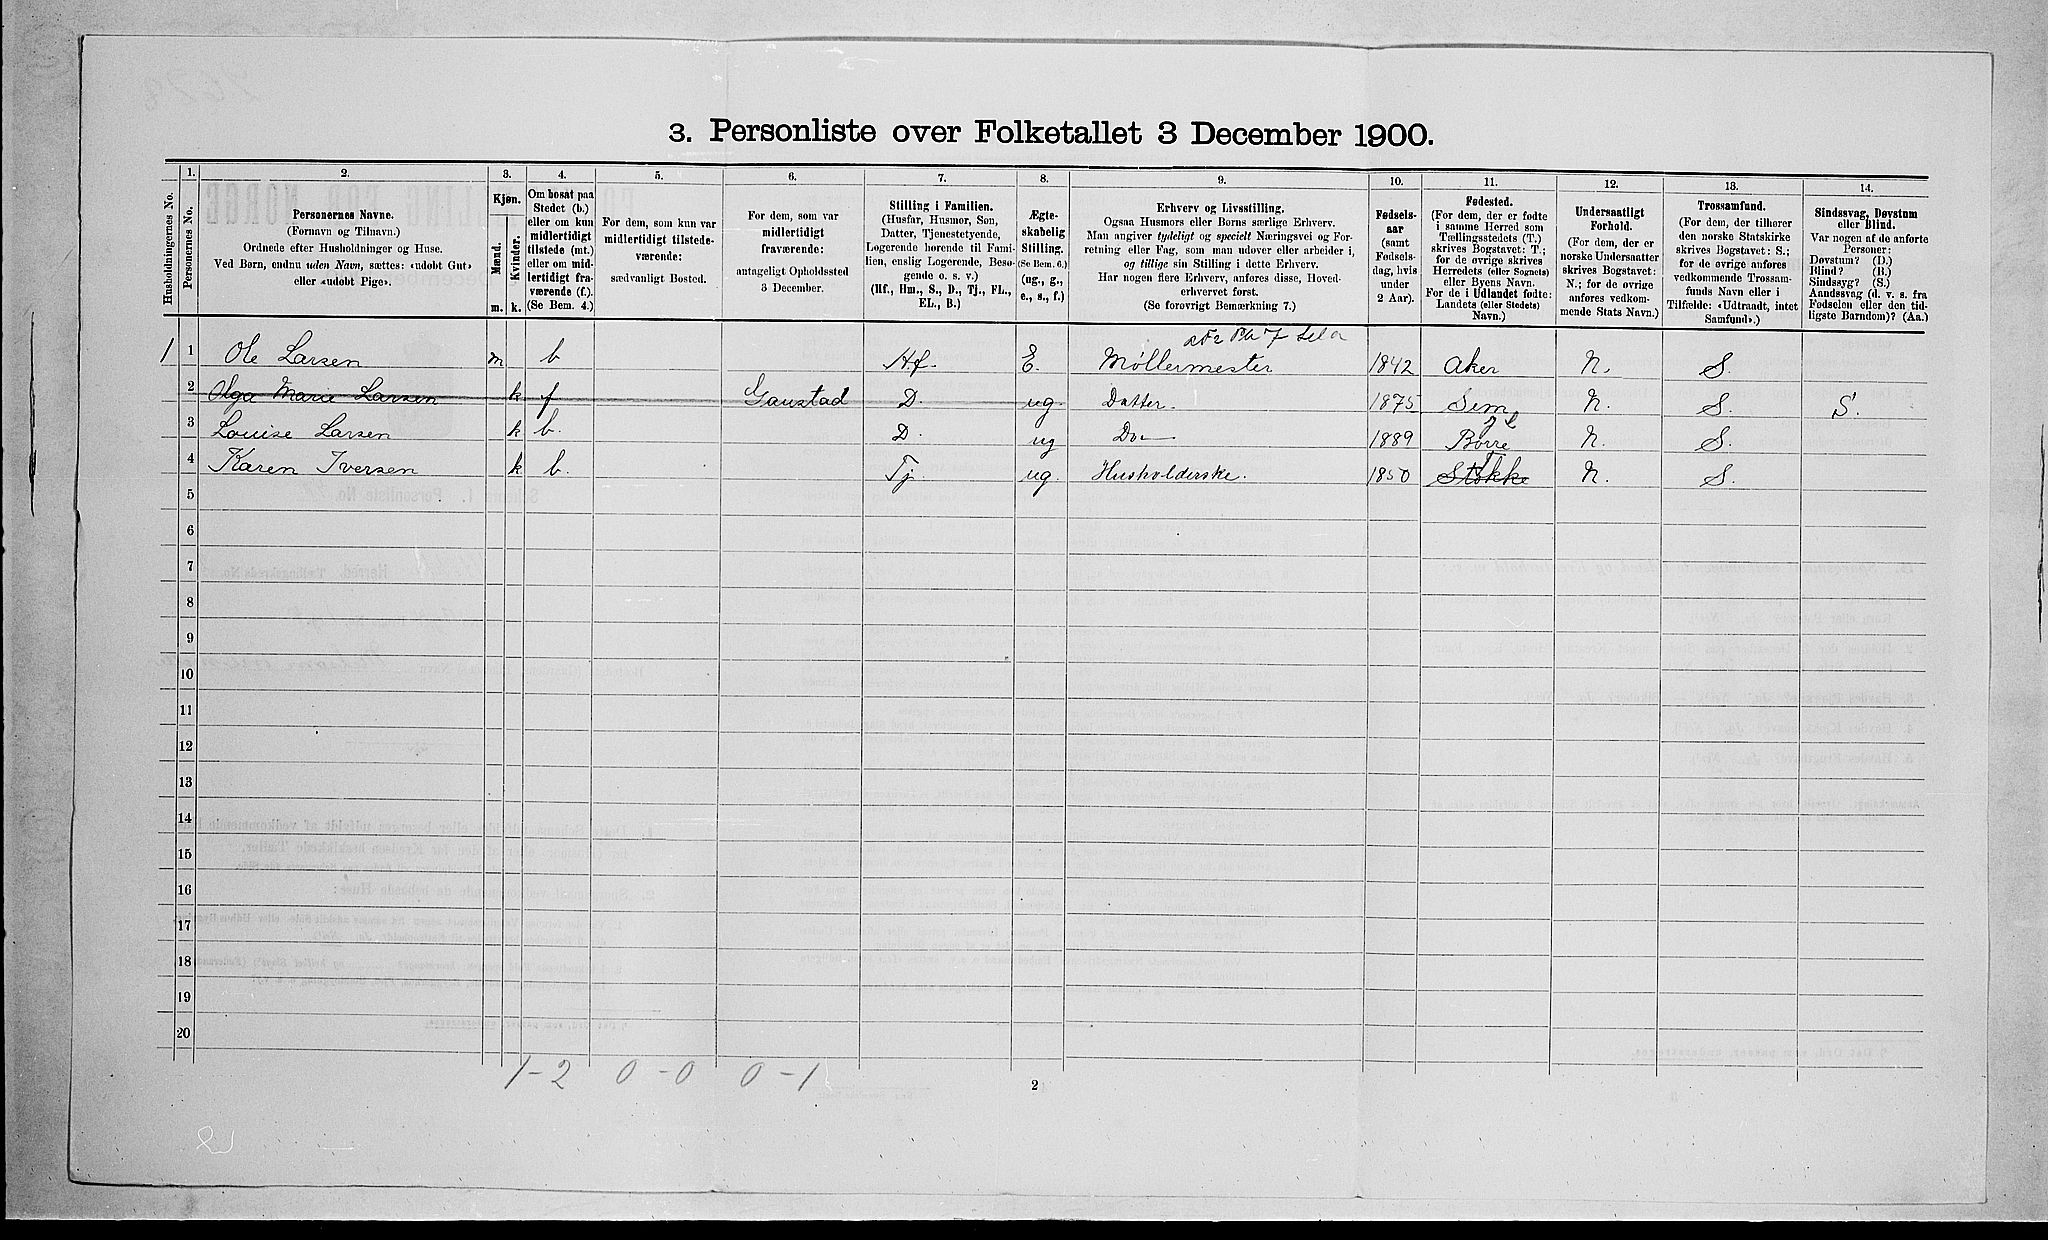 3. Personliste over Folketallet 3 December 1900.
Husholdningernes No.
1.
Personernes No.
2.
Personernes Navne.
(Fornavn og Tilnavn.)
Ordnede efter Husholdninger og Huse.
Ved Børn, endnu uden Navn, sættes: «udøbt Gut»
eller «udøbt Pige».
3.
Kjøn.
Mænd.
Kvinder.
m. k.
4.
Om bosat paa
Stedet (b.)
eller om kun
midlertidigt
tilstede (mt.)
eller om mid-
lertidigt fra-
værende (f.).
(Se Bem. 4.)
5.
For dem, som kun var
midlertidigt tilstede-
værende:
sædvanligt Bosted.
6.
For dem, som var
midlertidigt
fraværende:
antageligt Opholdssted
3 December.
7.
Stilling i Familien.
(Husfar, Husmor, Søn,
Datter, Tjenestetyende,
Logerende hørende til Fami-
lien, enslig Logerende, Besø-
gende o. s. v.)
(Hf., Hm., S., D., Tj., FL.,
EL., B.)
8.
Ægte-
skabelig
Stilling.
(Se Bem. 6.)
(ug., g.,
e., s., f.)
9.
Erhverv og Livsstilling.
Ogsaa Husmors eller Børns særlige Erhverv.
Man angiver tydeligt og specielt Næringsvei og For-
retning eller Fag, som man udøver eller arbeider i,
og tillige sin Stilling i dette Erhverv.
Har nogen flere Erhverv, anføres disse, Hoved-
erhvervet først.
(Se forøvrigt Bemærkning 7.)
10.
Fødsels-
aar
(samt
Fødsels-
dag, hvis
under
2 Aar).
11.
Fødested.
(For dem, der er fødte
i samme Herred som
Tællingsstedets (T.)
skrives Bogstavet: T.;
for de øvrige skrives
Herredets (eller Sognets)
eller Byens Navn.
For de i Udlandet fødte:
Landets (eller Stedets)
Navn.)
12.
Undersaatligt
Forhold.
(For dem, der er
norske Undersaatter
skrives Bogstavet:
N.; for de øvrige
anføres vedkom-
mende Stats Navn.)
13.
Trossamfund.
(For dem, der tilhører
den norske Statskirke
skrives Bogstavet: S.;
for de øvrige anføres
vedkommende Trossam-
funds Navn eller i
Tilfælde: «Udtraadt, intet
Samfund».)
14.
Sindssvag, Døvstum
eller Blind.
Var nogen af de anførte
Personer:
Døvstum? (D.)
Blind? (B.)
Sindssyg? (S.)
Aandssvag (d. v. s. fra
Fødselen eller den tid-
ligste Barndom)? (Aa.)
1 1 Ole Larsen m b Hf. E. Møllermester 1842 Aker N. S.
2 Olga Marie Larsen k f Gaustad D. ug. Datter. 1875 Sem N. S. S.
3 Louise Larsen k b. D. ug Do 1889 Borre N. S.
4 Karen Iversen k b. Tj. ug. Husholderske. 1850 Stokke T N. S.
5
6
7
8
9
10
11
12
13
14
15
16
17
18
19
20
1-2 0-0 0-1
2